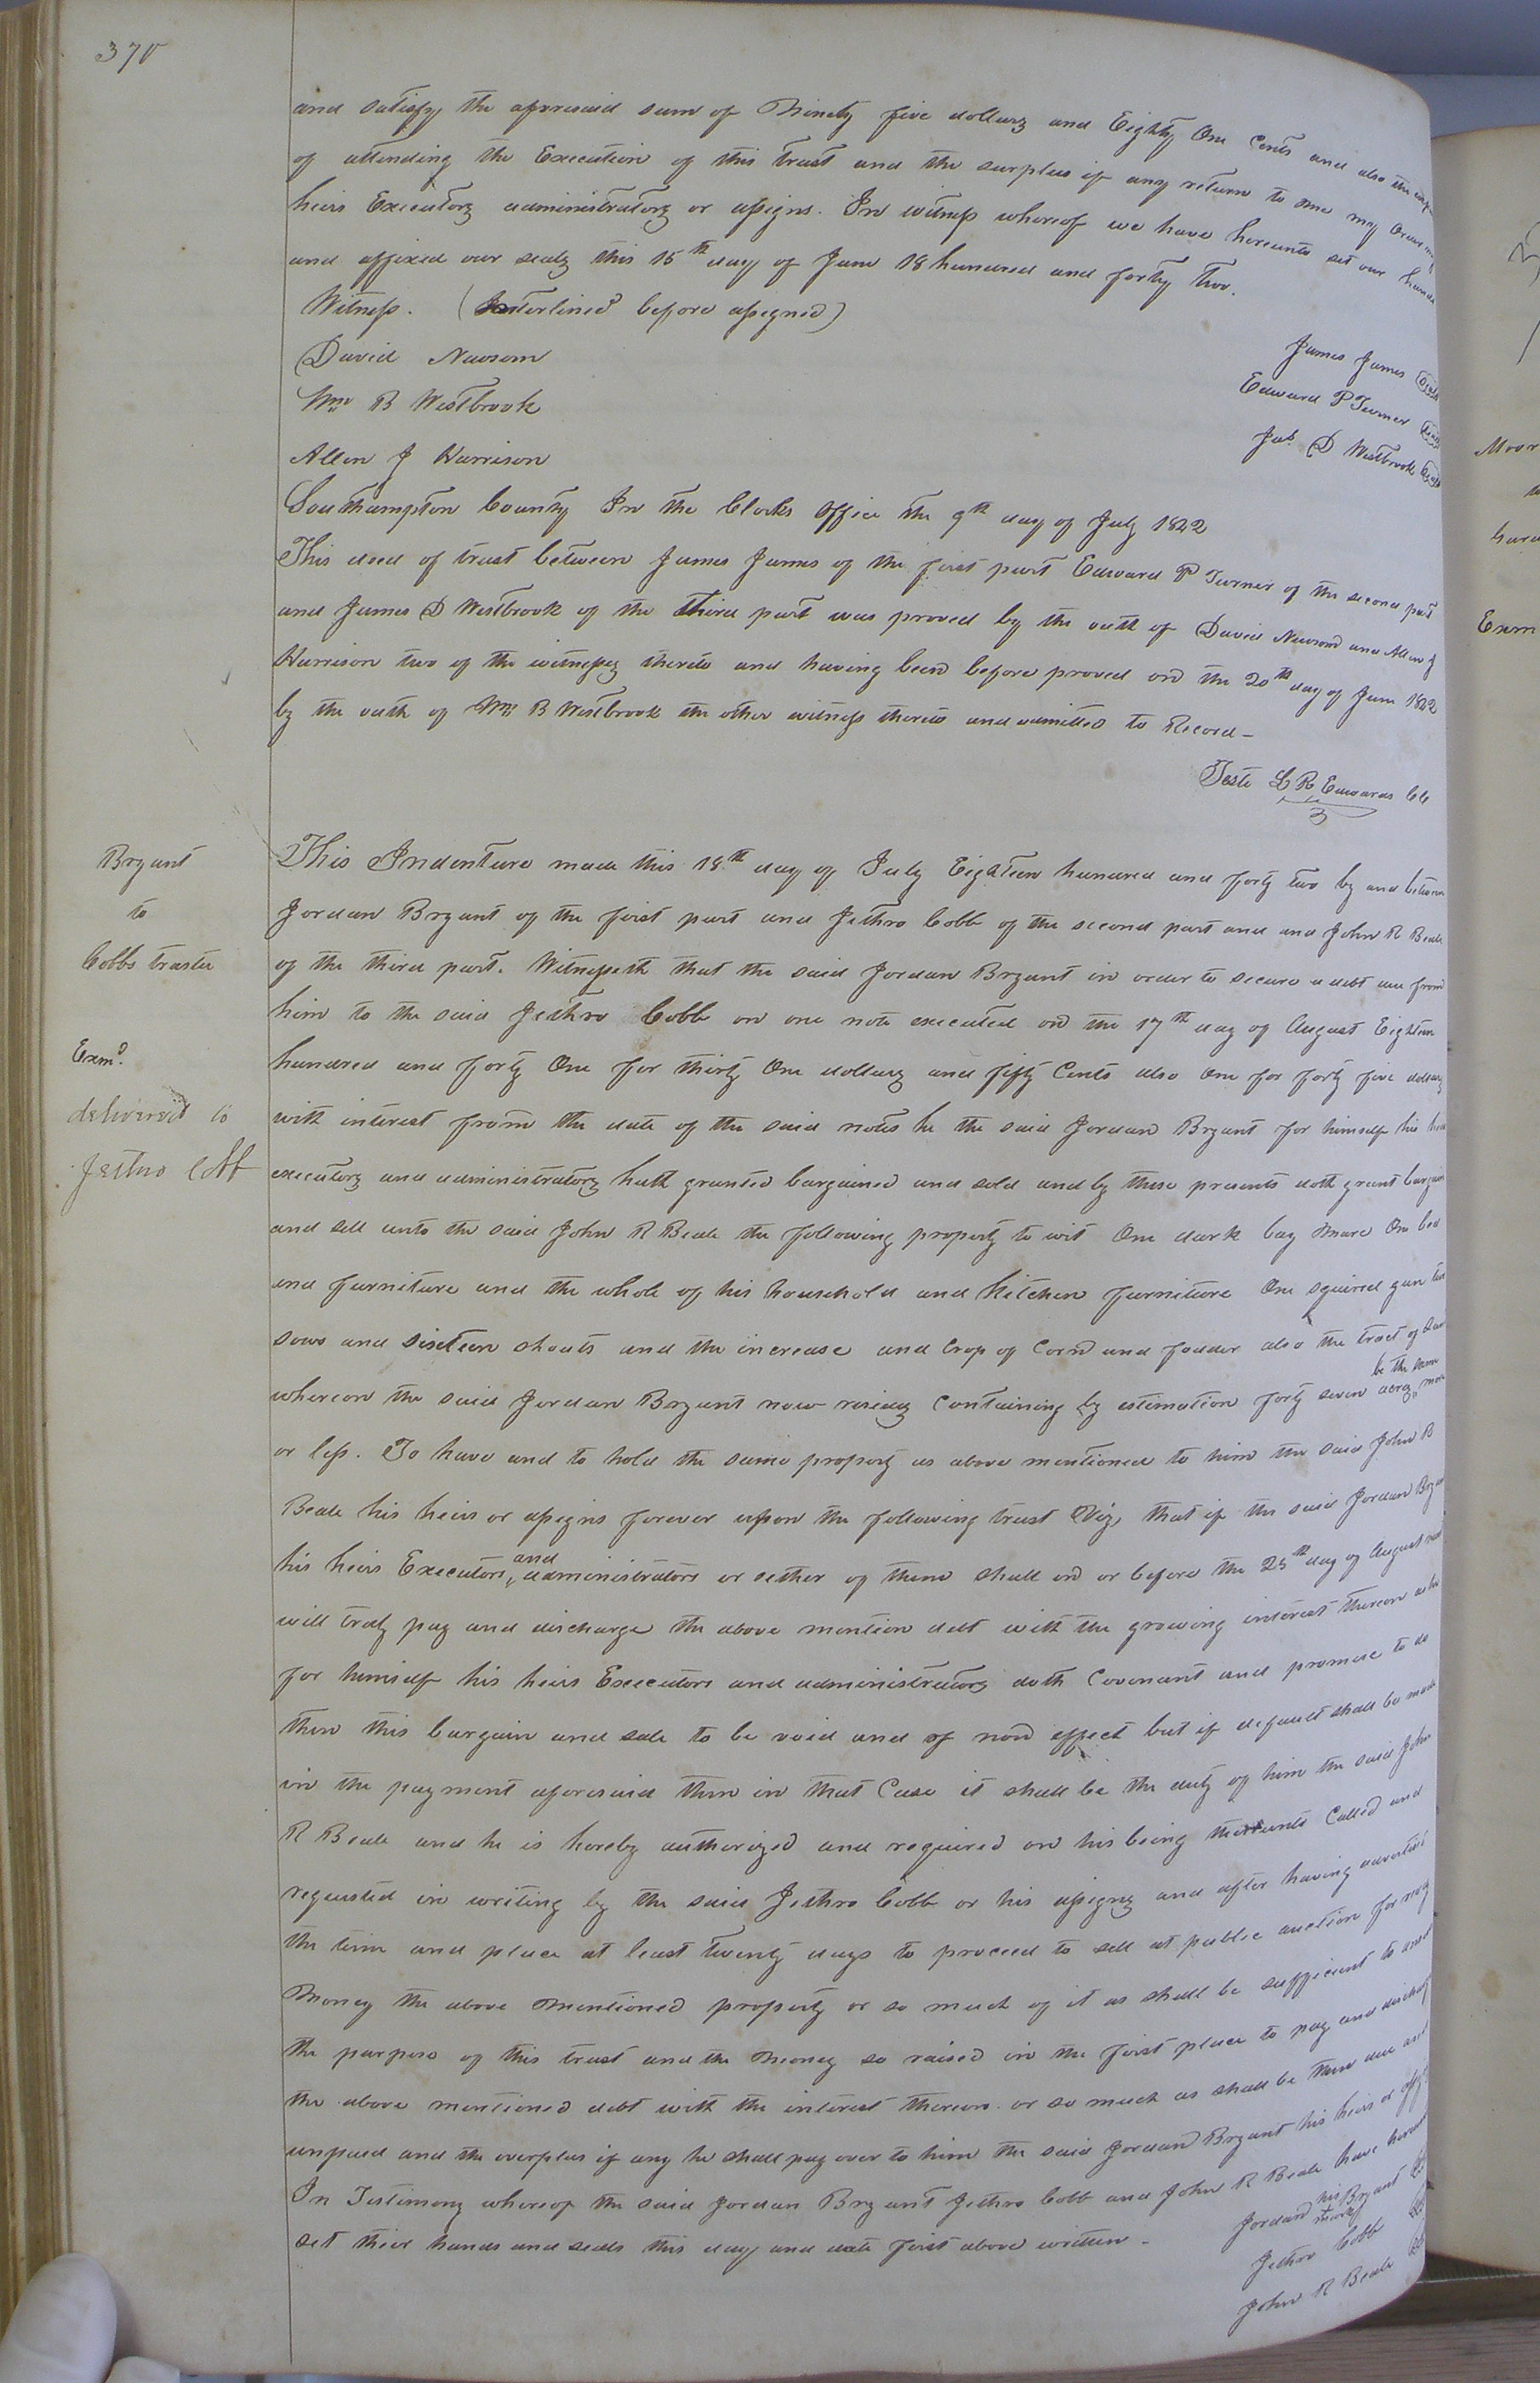 370
and satisfy the aforesaid sum of Ninety five dollars and Eighty One Cents and also the
of attending the Execution of this trust and the surplus if any return to me my
heirs Executors administrators or assigns. In witness whereof we have hereunto set our hands
and affixed our seals this 15th day of June 18 hundred and forty two.
Witness. (Interlined before assigned)
David Newsom
Wm B Westbrook
Allen J Harrison
James James (Seal)
Edward P Turner (Seal)
Jas D Westbrook (Seal)
Southampton County In the Clerks Office the 9th day of July 1842
This deed of trust between James James of the first part Edward P Turner of the second part
and James D Westbrook of the third part was proved by the oath of David Newsom and Allen J
Harrison two of the witnesses thereto and having been before proved on the 20th day of June 1842
by the oath of Wm B Westbrook the other witness thereto and admitted to Record—
Teste L R Edwards CC
Bryant
to
Cobbs trustee
Exmd.
delivered to
Jethro Cobb
This Indenture made this 18th day of July Eighteen hundred and forty two by and between
Jordan Bryant of the first part and Jethro Cobb of the second part and and John R Beale
of the third part. Witnesseth that the said Jordan Bryant in order to secure a debt due from
him to the said Jethro Cobb on one note executed on the 17th day of August Eighteen
hundred and forty One for thirty One dollars and fifty Cents also One for forty five dollars
with interest from the date of the said notes he the said Jordan Bryant for himself his heirs
executors and administrators hath granted bargained and sold and by these presents doth grant bargain
and sell unto the said John R Beale the following property to wit One dark bay Mare One bed
and furniture and the whole of his household and Kitchen furniture One squirrel gun two
sows and sixteen shoats and the increase and Crop of Corn and fodder also the tract of Land
whereon the said Jordan Bryant now resides Containing by estimation forty seven acres be the same more
or less. To have and to hold the same property as above mentioned to him the said John R
Beale his heirs or assigns forever upon the following trust Viz, that if the said Jordan Bryant
his heirs Executors, and administrators or either of them shall on or before the 25th day of August next
will truly pay and discharge the above mention debt with the growing interest thereon as he
for himself his heirs Executors and administrators doth Covenant and promise to do
then this bargain and sale to be void and of non effect but if default shall be made
in the payment aforesaid then in that Case it shall be the duty of him the said John
R Beale and he is hereby authorized and required on his being thereunto Called and
requested in writing by the said Jethro Cobb or his assigns and after having advertised
the time and place at least twenty days to proceed to sell at public auction for ready
Money the above Mentioned property or so much of it as shall be sufficient to
the purpose of this trust and the Money so raised in the first place to pay and discharge
the above mentioned debt with the interest thereon or so much as shall be then due and
unpaid and the overplus if any he shall pay over to him the said Jordan Bryant his heirs or
In Testimony whereof the said Jordan Bryant Jethro Cobb and John R Beale have hereunto
set their hands and seals this day and date first above written—
Jordan his + mark Bryant
Jethro Cobb
John R Beale